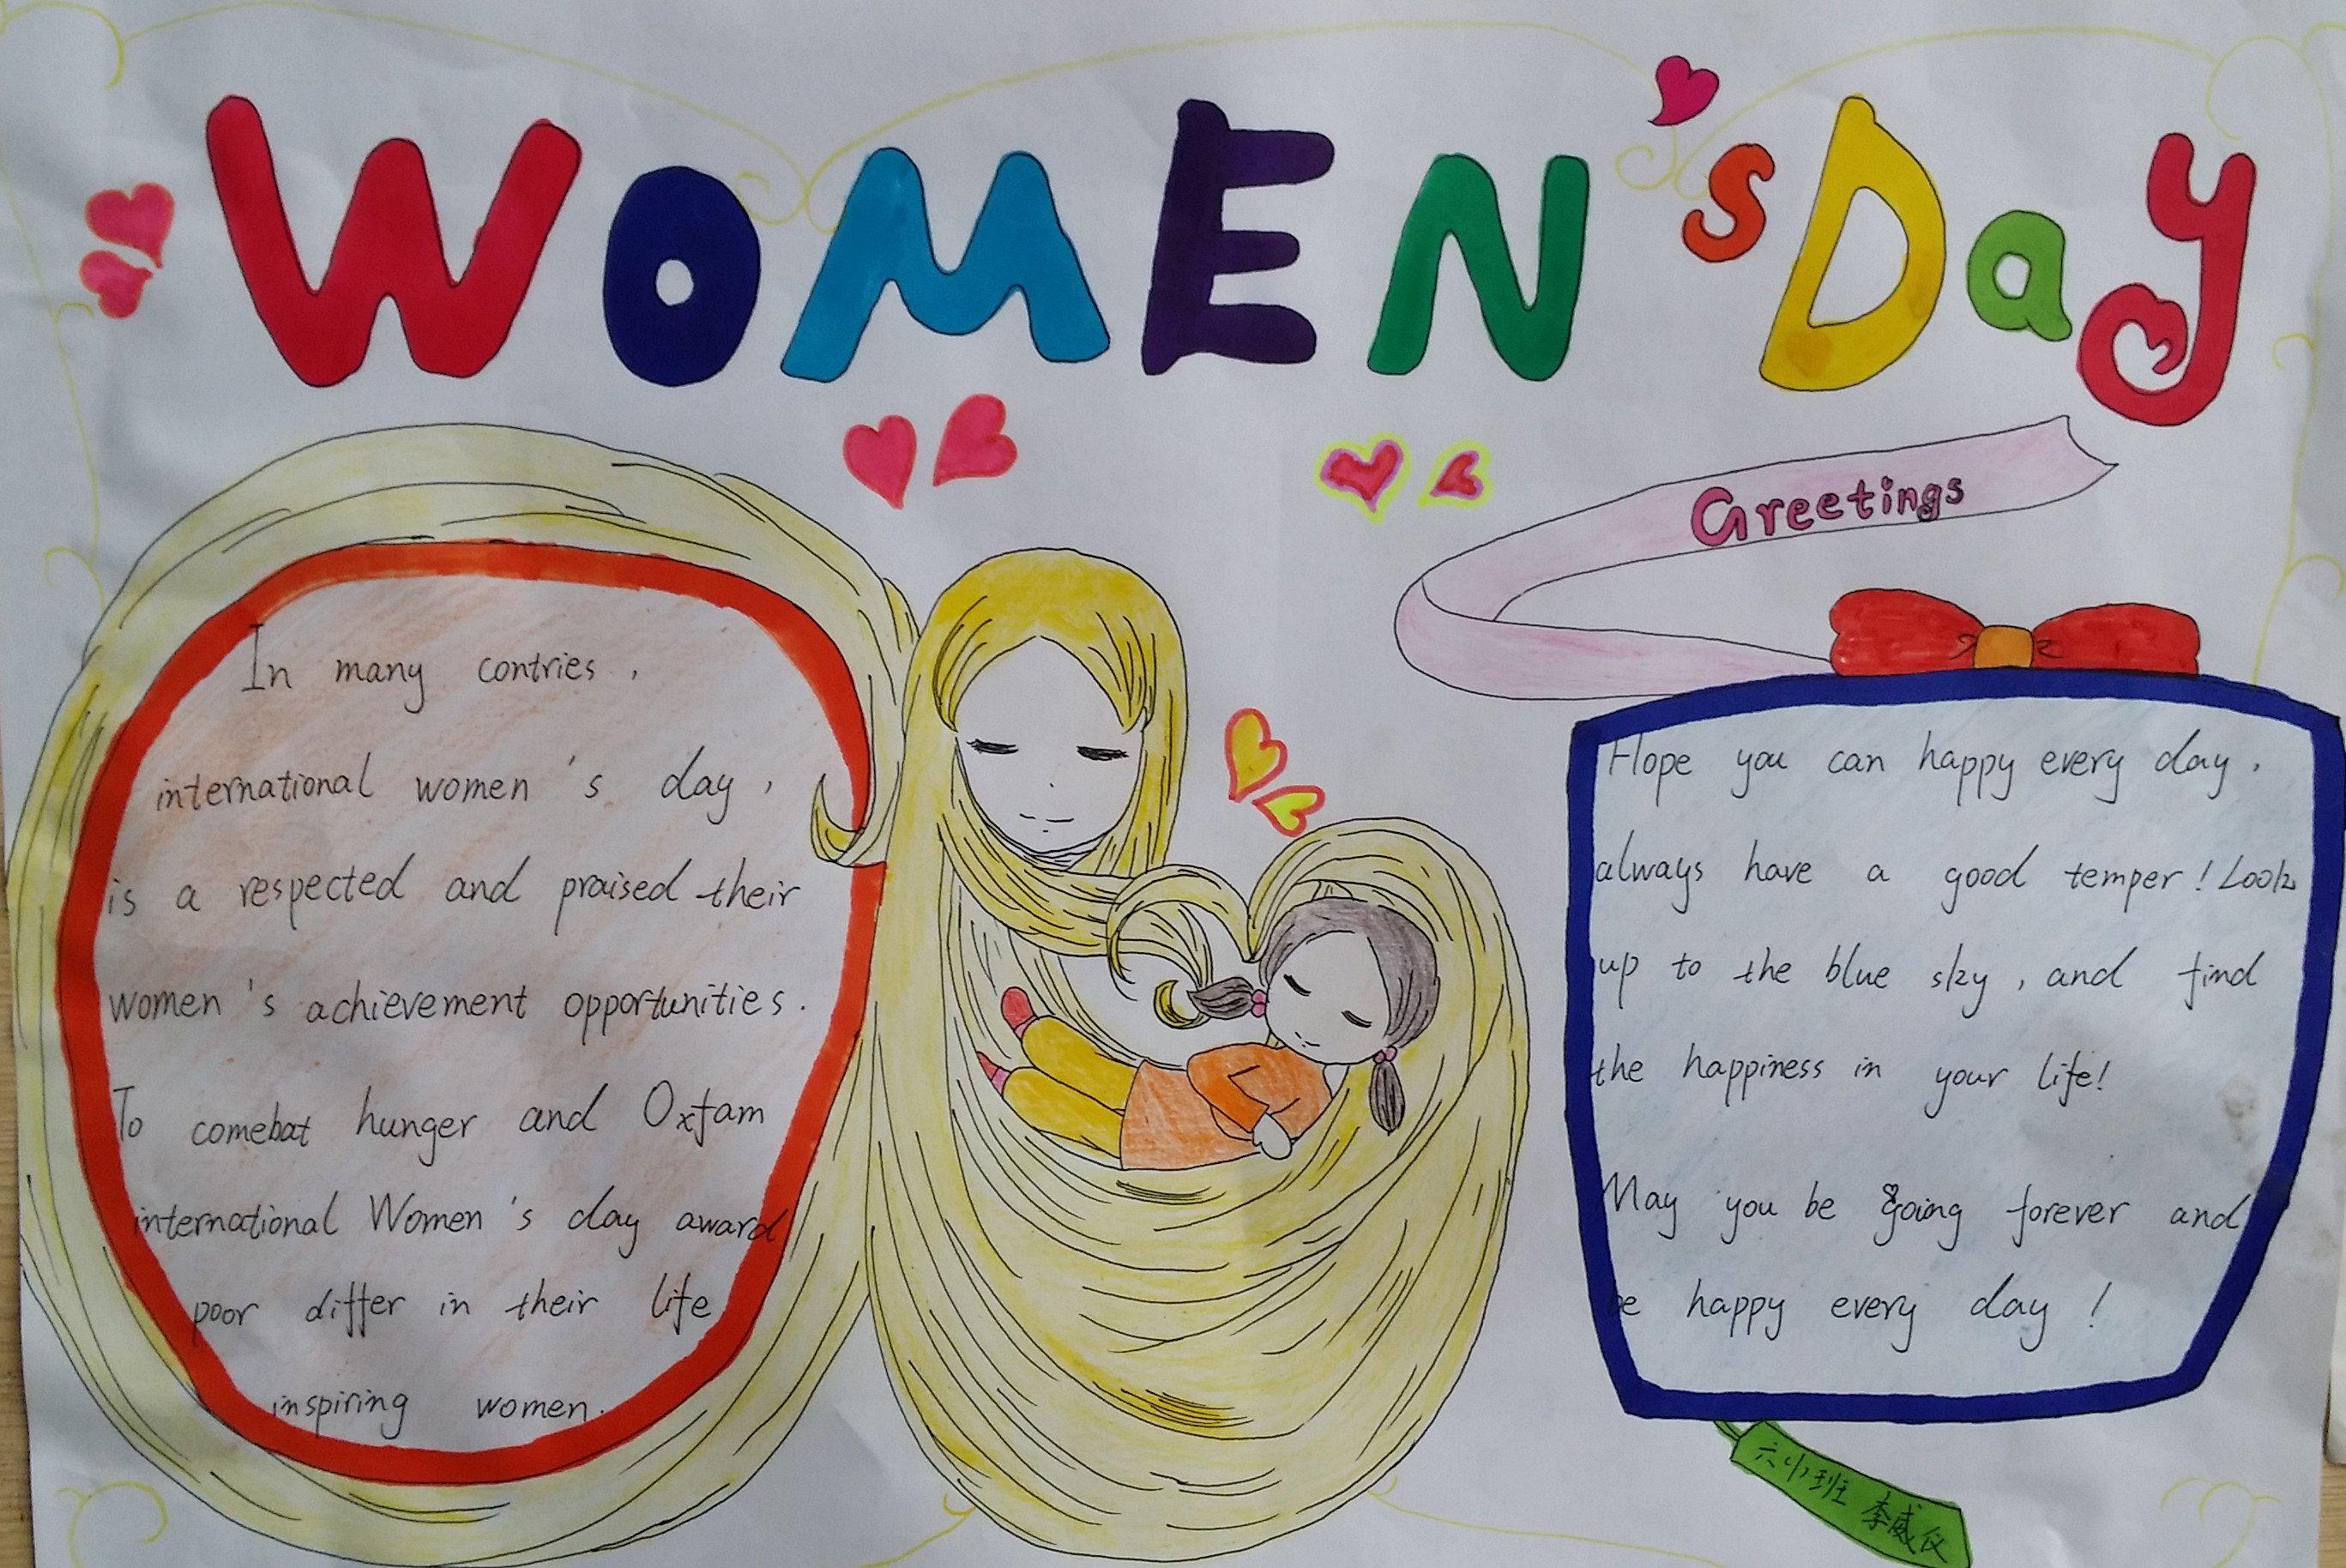 WOMEN's Day
In many contries,
international women's day,
is a respected and praised their
women's achievement opportunities.
To comebat hunger and Oxfam
international Women's day award
poor differ in their life
inspiring women.
Greetings
Hope you can happy every day,
always have a good temper! Look
up to the blue sky, and find
the happiness in your life!
May you be going forever and
be happy every day!
班 李威仪